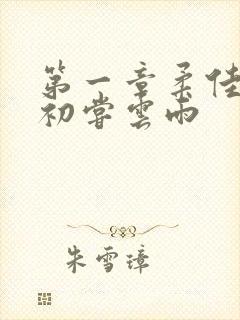 第一章柔佳
初尝雲雨
朱雪璋